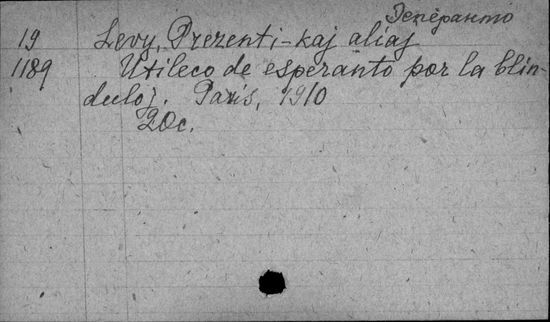 Эсперанто
19 Levy, Prezenti-kaj aliaj
1189 Utileco de esperanto por la blin-
duloj. Paris, 1910
20c.